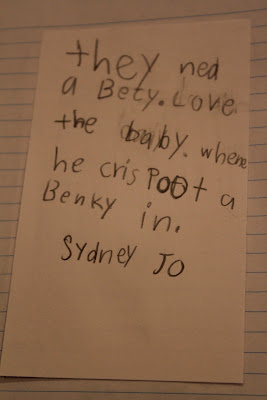 they ned
a Bety. Love
the baby. where
he cris Poot a
Benky in.
Sydney Jo